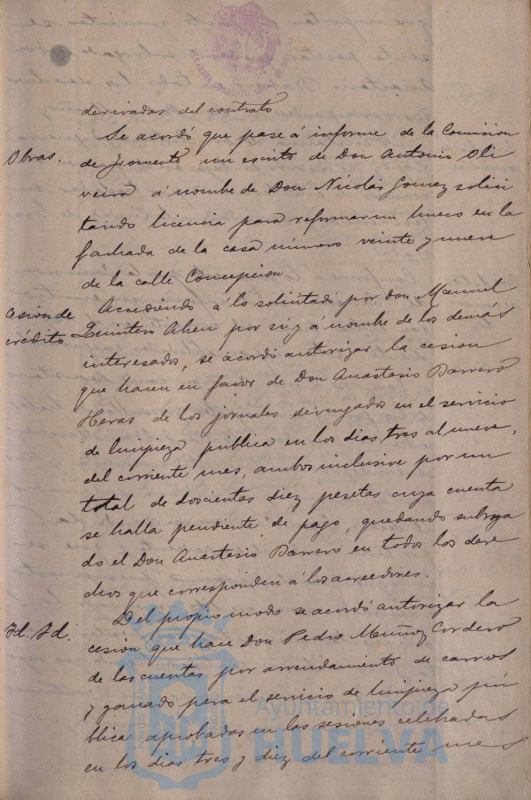 derivadas del contrato
Obras.
Se acordó que pase á informe de la Comision
de Fomento un escrito de Don Antonio Oli
veira á nombre de Don Nicolás Gomez solici
tando licencia para reformar un hueco en la
fachada de la casa número veinte y nueve
de la calle Concepcion
Cesion de
crédito
Accediendo á lo solicitado por Don Manuel
Quintero por si y á nombre de los demás
interesados, se acordó autorizar la cesion
que hacen en favor de Don Anastasio Barrero
Heras de los jornales devengados en el servicio
de limpieza pública en los dias tres al nueve,
del corriente mes, ambos inclusive por un
total de doscientas diez pesetas cuya cuenta
se halla pendiente de pago, quedando subroga
do el Don Anastasio Barrero en todos los dere
chos que corresponden á los acreedores.
Id. Id.
Del propio modo se acordó autorizar la
cesion que hace Don Pedro Muñoz Cordero
de las cuentas por arrendamiento de carros
y ganado para el servicio de limpieza pú
blica aprobadas en las sesiones celebradas
en los dias tres y diez del corriente mes
Ayuntamiento de
HUELVA